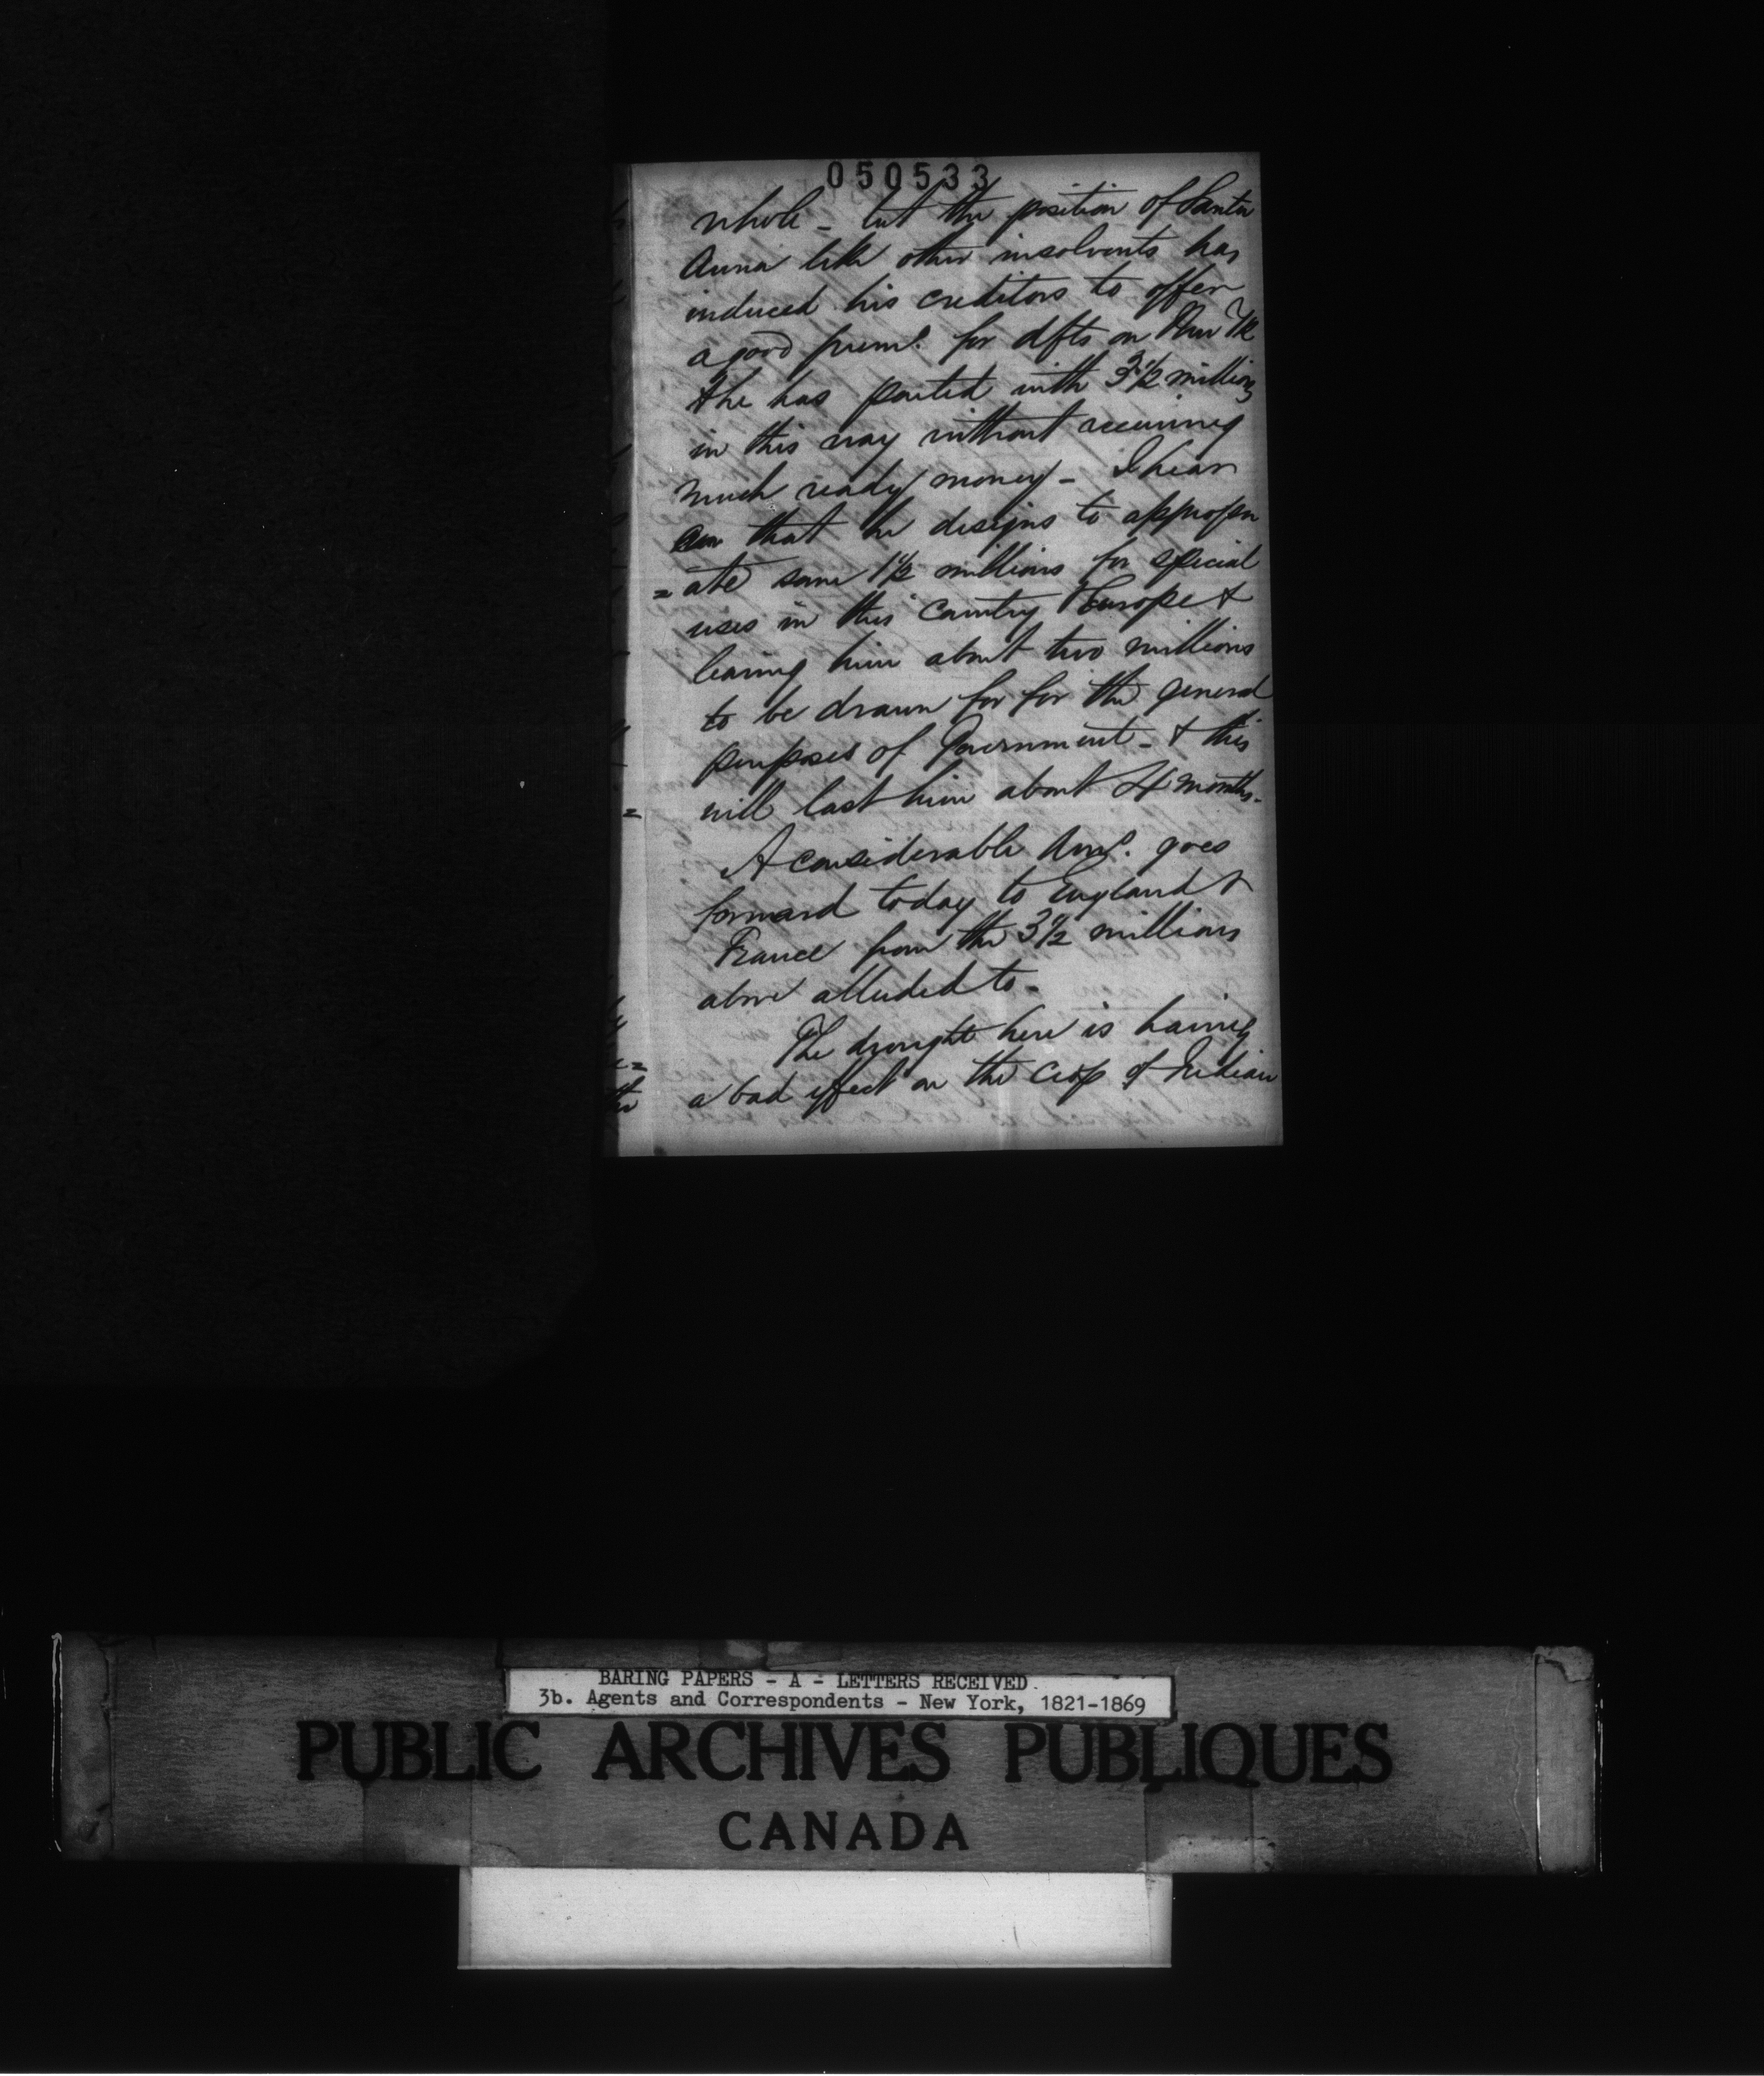 050533
whole - but the position of Santa
Anna like other insolvents has
induced his creditors to offer
a good prem. for dfts on New Yk
& he has parted with 3 1/2 millions
in this way without receiving
much ready money - I hear
that he designs to appropri
= ate some 1 1/2 millions for special
uses in this Country & Europe &
leaving him about two millions
to be drawn for for the general
purposes of Government - & this
will last him about 4 months.
A considerable Amt. goes
forward today to England &
France from the 3 1/2 millions
above alluded to -
The drought here is having
a bad effect on the crop of Indian
BARING PAPERS - A - LETTERS RECEIVED.
3b. Agents and Correspondents - New York, 1821-1869
PUBLIC ARCHIVES PUBLIQUES
CANADA